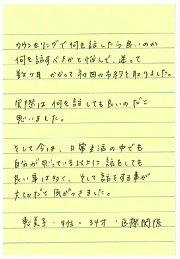 カウンセリングで何を話したら良いのか
何を話すべきかと悩んで、迷って
数ヶ月かかって初回の予約を取りました。
実際は何を話しても良いのだと
思いました。
そして今は、日常生活の中でも
自分が思っている以上に話をしても
良い事は多く、そして話をする事が
大切だって気がつきました。
34才・医療関係